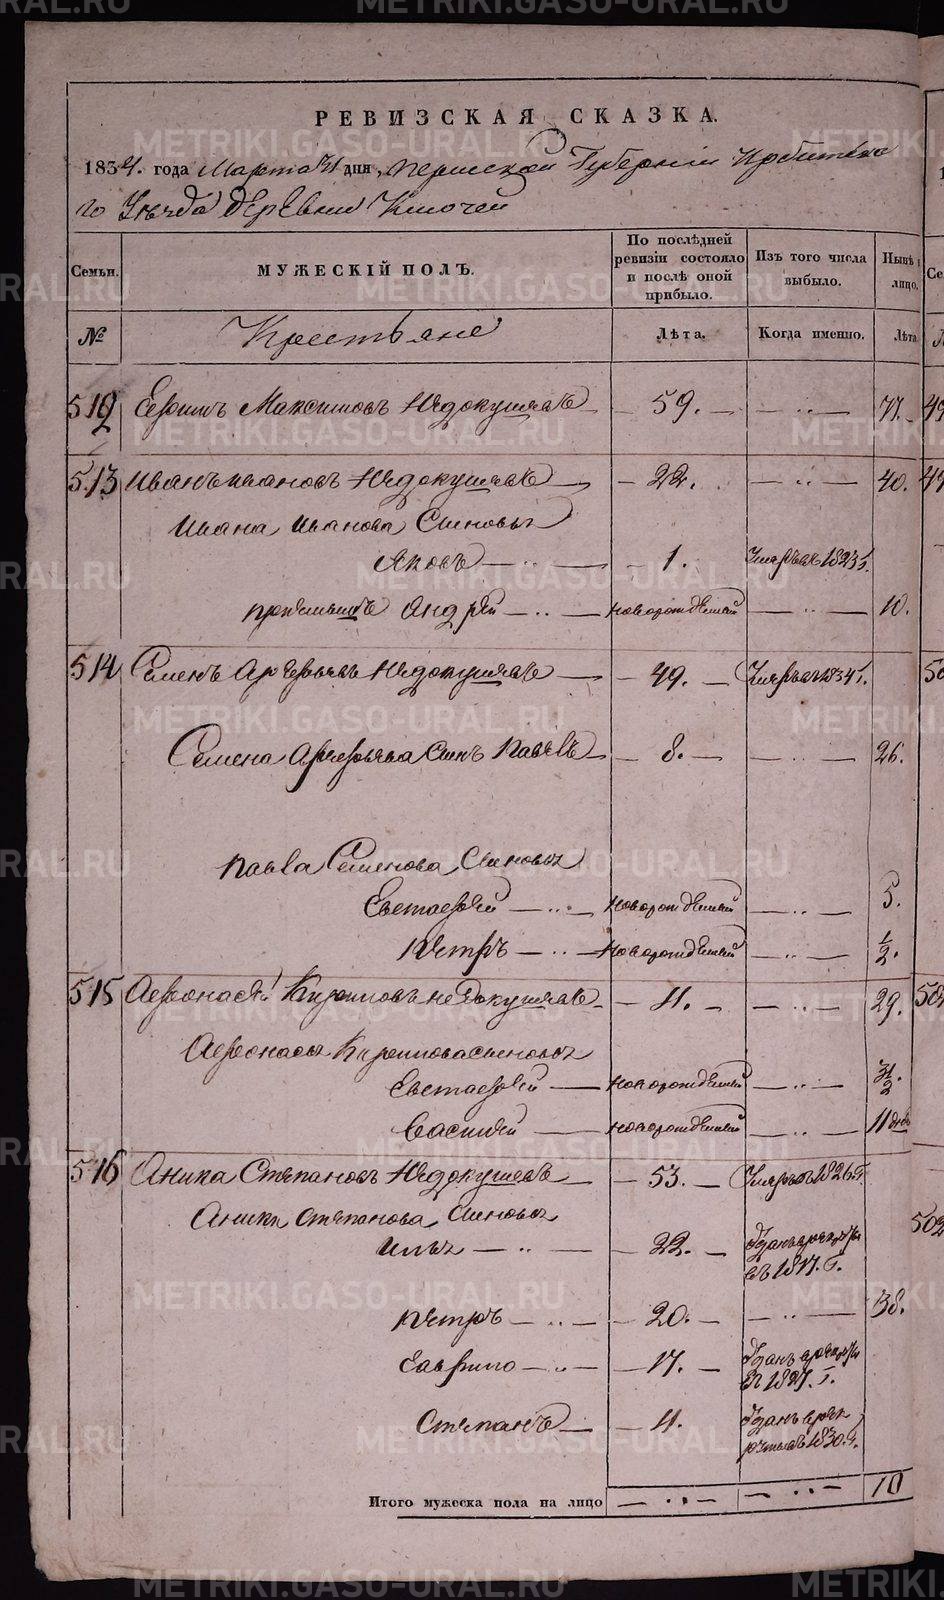 РЕВИЗСКАЯ СКАЗКА.
1834. года Марта 31 дня, Пермской Губернии Ирбитска
го Уѣзда деревни Ключей
Семьи. МУЖЕСКІЙ ПОЛЪ. По послѣдней ревизіи состояло и послѣ оной прибыло. Изъ того числа выбыло. Нынѣ лицо.
№ Крестьяне Лѣта. Когда именно. Лѣта
512 Ефимъ Максимовъ Недокушевъ — 59. — — „ — 77.
5.13 Иванъ Ивановъ Недокушевъ — 22. — „ — 40.
Ивана Иванова Сыновья
Яковъ — „ — 1. Умеръ въ 1823 г.
Андрей — „ — новорожденный — „ — 10.
514 Семенъ Арефьевъ Недокушевъ — 49. — Умеръ въ 1834 г.
Семена Арефьева сынъ Павелъ — 8. — — „ — 26.
Павла Семенова Сыновья
Евстафей — „ — новорожденный — „ — 5.
Петръ — „ — новорожденный — „ — 1/2.
515 Афонасей Кириловъ Недокушевъ — 11. — — „ — 29.
Афонасья Кирилова сыновья
Евстафей — новорожденный — „ — 3 1/2.
Василей — новорожденный — „ — 11 днѣ
516 Аника Степановъ Недокушевъ — 53. — Умеръ въ 1826 г.
Аники Степанова Сыновья
Илья — „ — 22. — Отданъ в рекруты
въ 1817. г.
Петръ — „ — 20. — — „ — 38.
Гаврило — „ — 17. — Отданъ в рекруты
в 1827. г.
Степанъ — 11. Отданъ в рек
руты въ 1830. г.
Итого мужеска пола на лицо — „ — — „ — 10